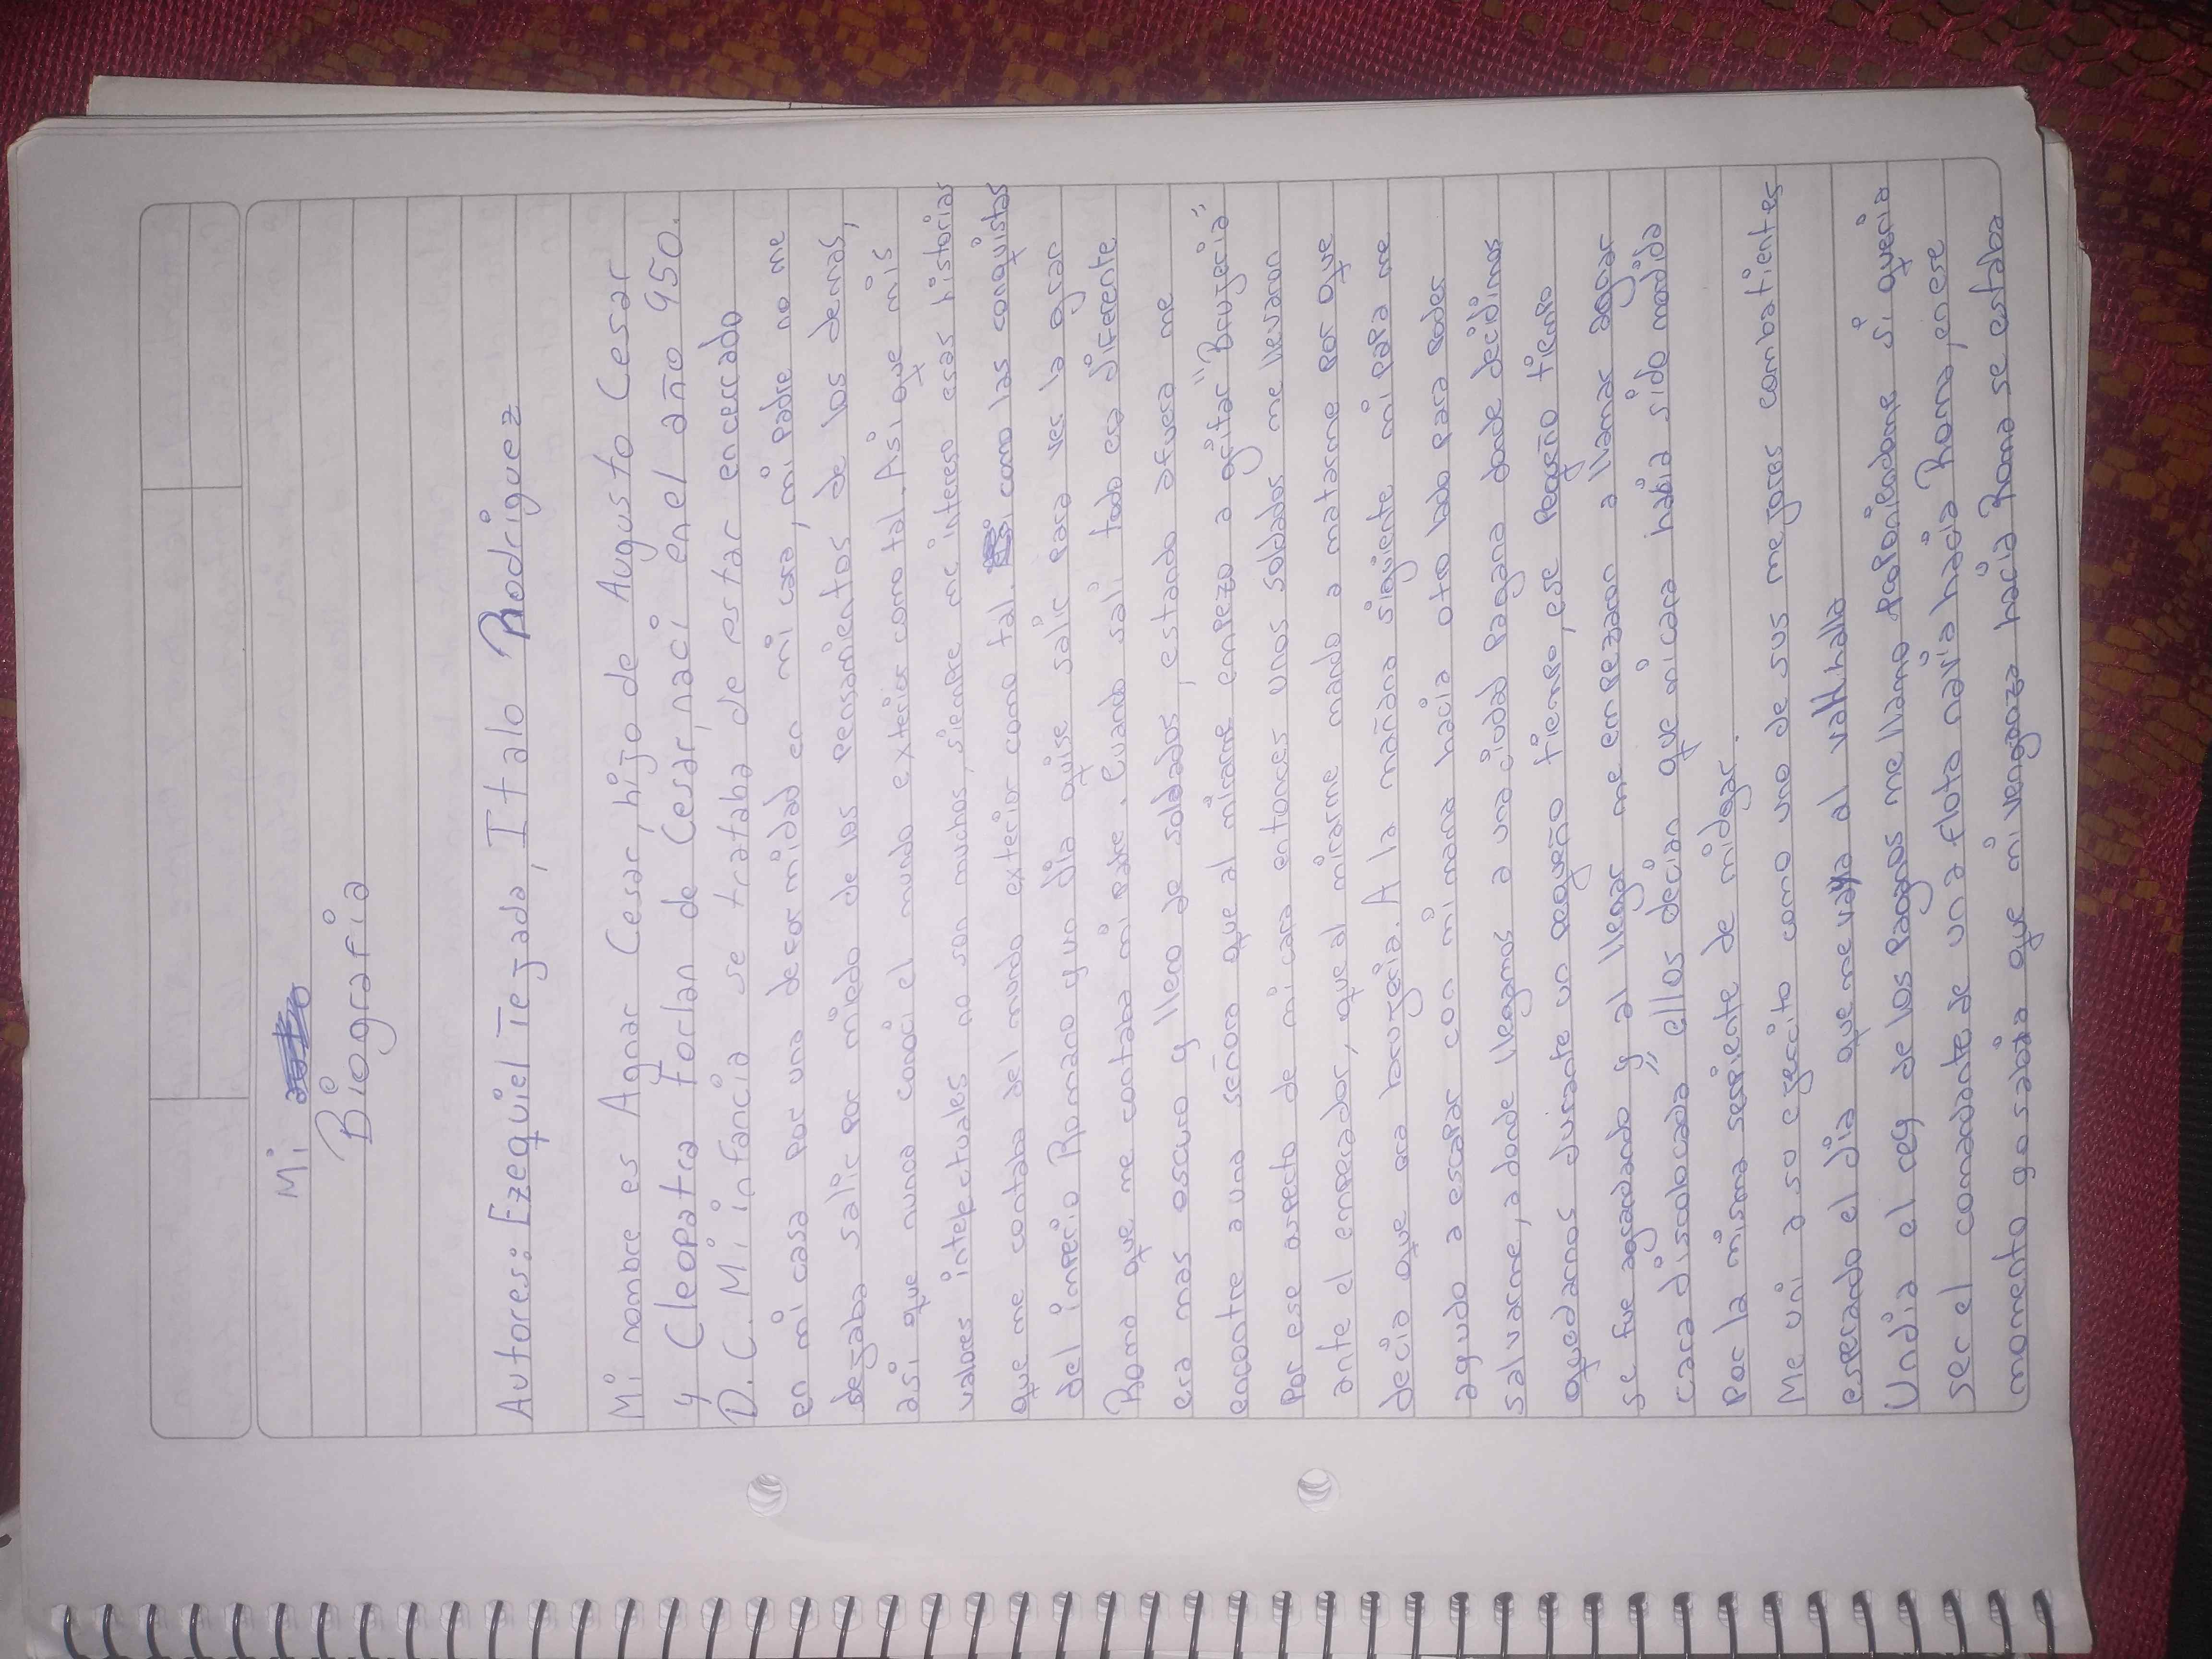 Mi
Biografia
Autores: Ezequiel Tejada, Italo Rodriguez
Mi nombre es Agnar Cesar, hijo de Augusto Cesar
y Cleopatra Forlan de Cesar, naci en el año 950.
D.C. Mi infancia se trataba de estar encerrado
en mi casa por una desformidad en mi cara, mi padre no me
dejaba salir por miedo de los pensamientos de los demas,
asi que nunca conoci el mundo exterior como tal. Asi que mis
valores intelectuales no son muchos, siempre me intereso esas historias
que me contaba del mundo exterior como tal. como las conquistas
del imperio Romano y un dia quise salir para ver la gran
Roma que me contaba mi padre. Cuando sali todo era diferente
era mas oscuro y lleno de soldados, estando afuera me
encontre a una señora que al mirarme empezo a gritar "Brujeria"
por ese aspecto de mi cara entonces unos soldados me llevaron
ante el emperador, que al mirarme mando a matarme por que
decia que era brujeria. A la mañana siguiente mi papa me
ayudo a escapar con mi mama hacia otro lado para poder
salvarme, a donde llegamos a una ciudad pagana donde decidimos
quedarnos durante un pequeño tiempo, ese pequeño tiempo
se fue agrandando y al llegar me empezaron a llamar agnar
cara discolocada" ellos decian que mi cara habia sido mordida
por la misma serpiente de midgar.
Me uni a su ejercito como uno de sus mejores combatientes
esperando el dia que me vaya al valhalla
Un dia el rey de los paganos me llamo poponiendome si queria
ser el comandante de una flota navia hacia Roma, en ese
momento yo sabia que mi venganza hacia Roma se estaba